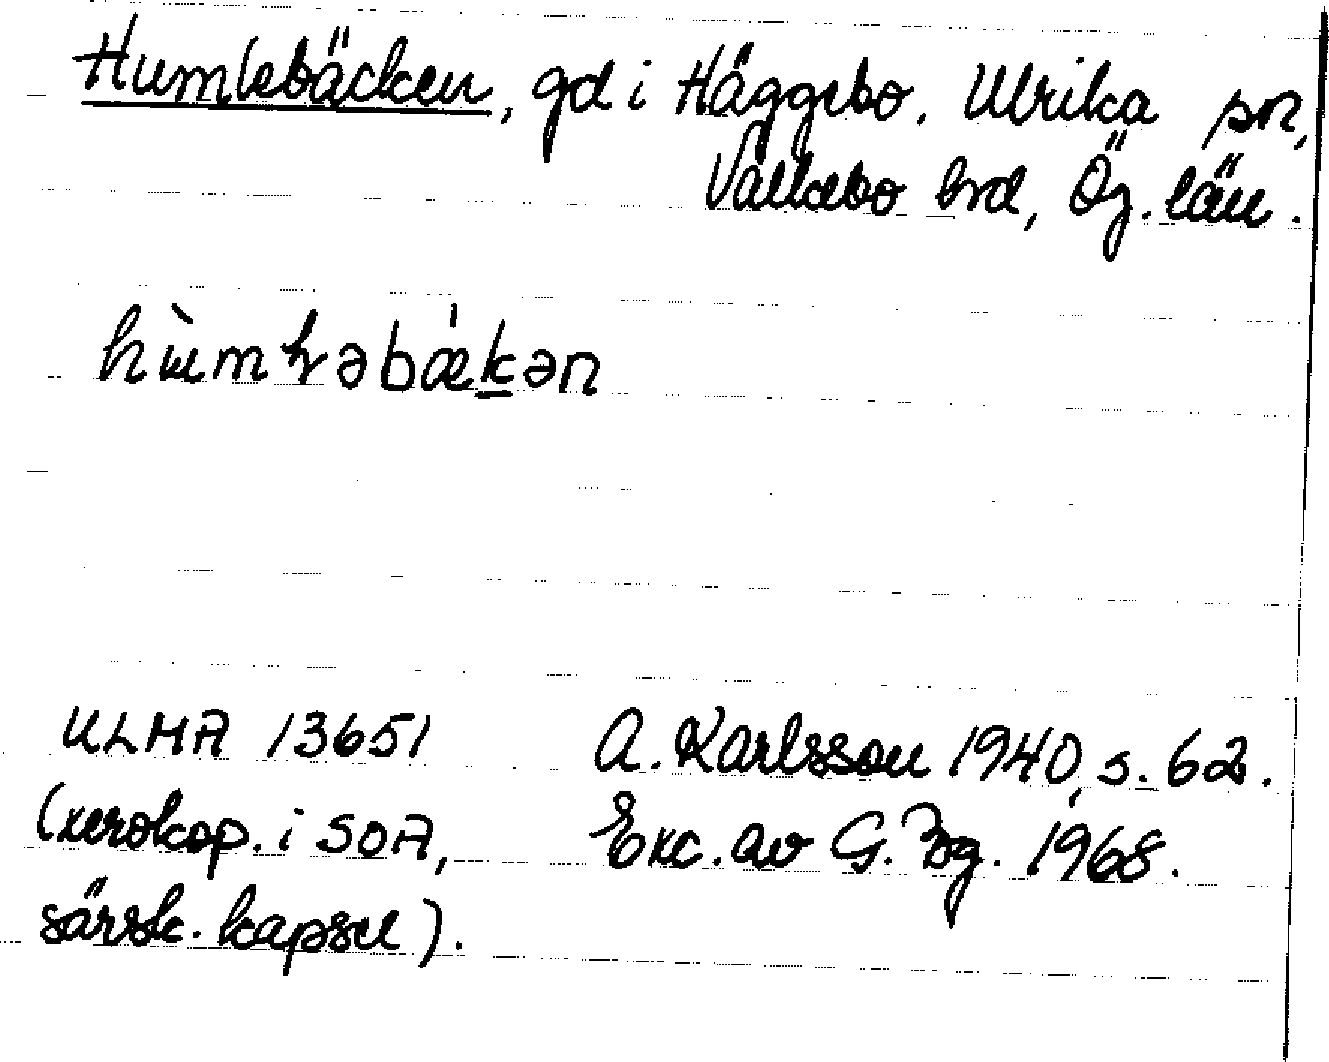 Humlebäcken, gd i Häggebo. Ulrika sn,
Valkebo hrd, Ög. län.
hùmɫəbǽkən
ULMA 13651
(xerokop. i SOA,
särsk. kapsel).
A. Karlsson 1940, s. 62.
Exc. av G. Bg. 1968.